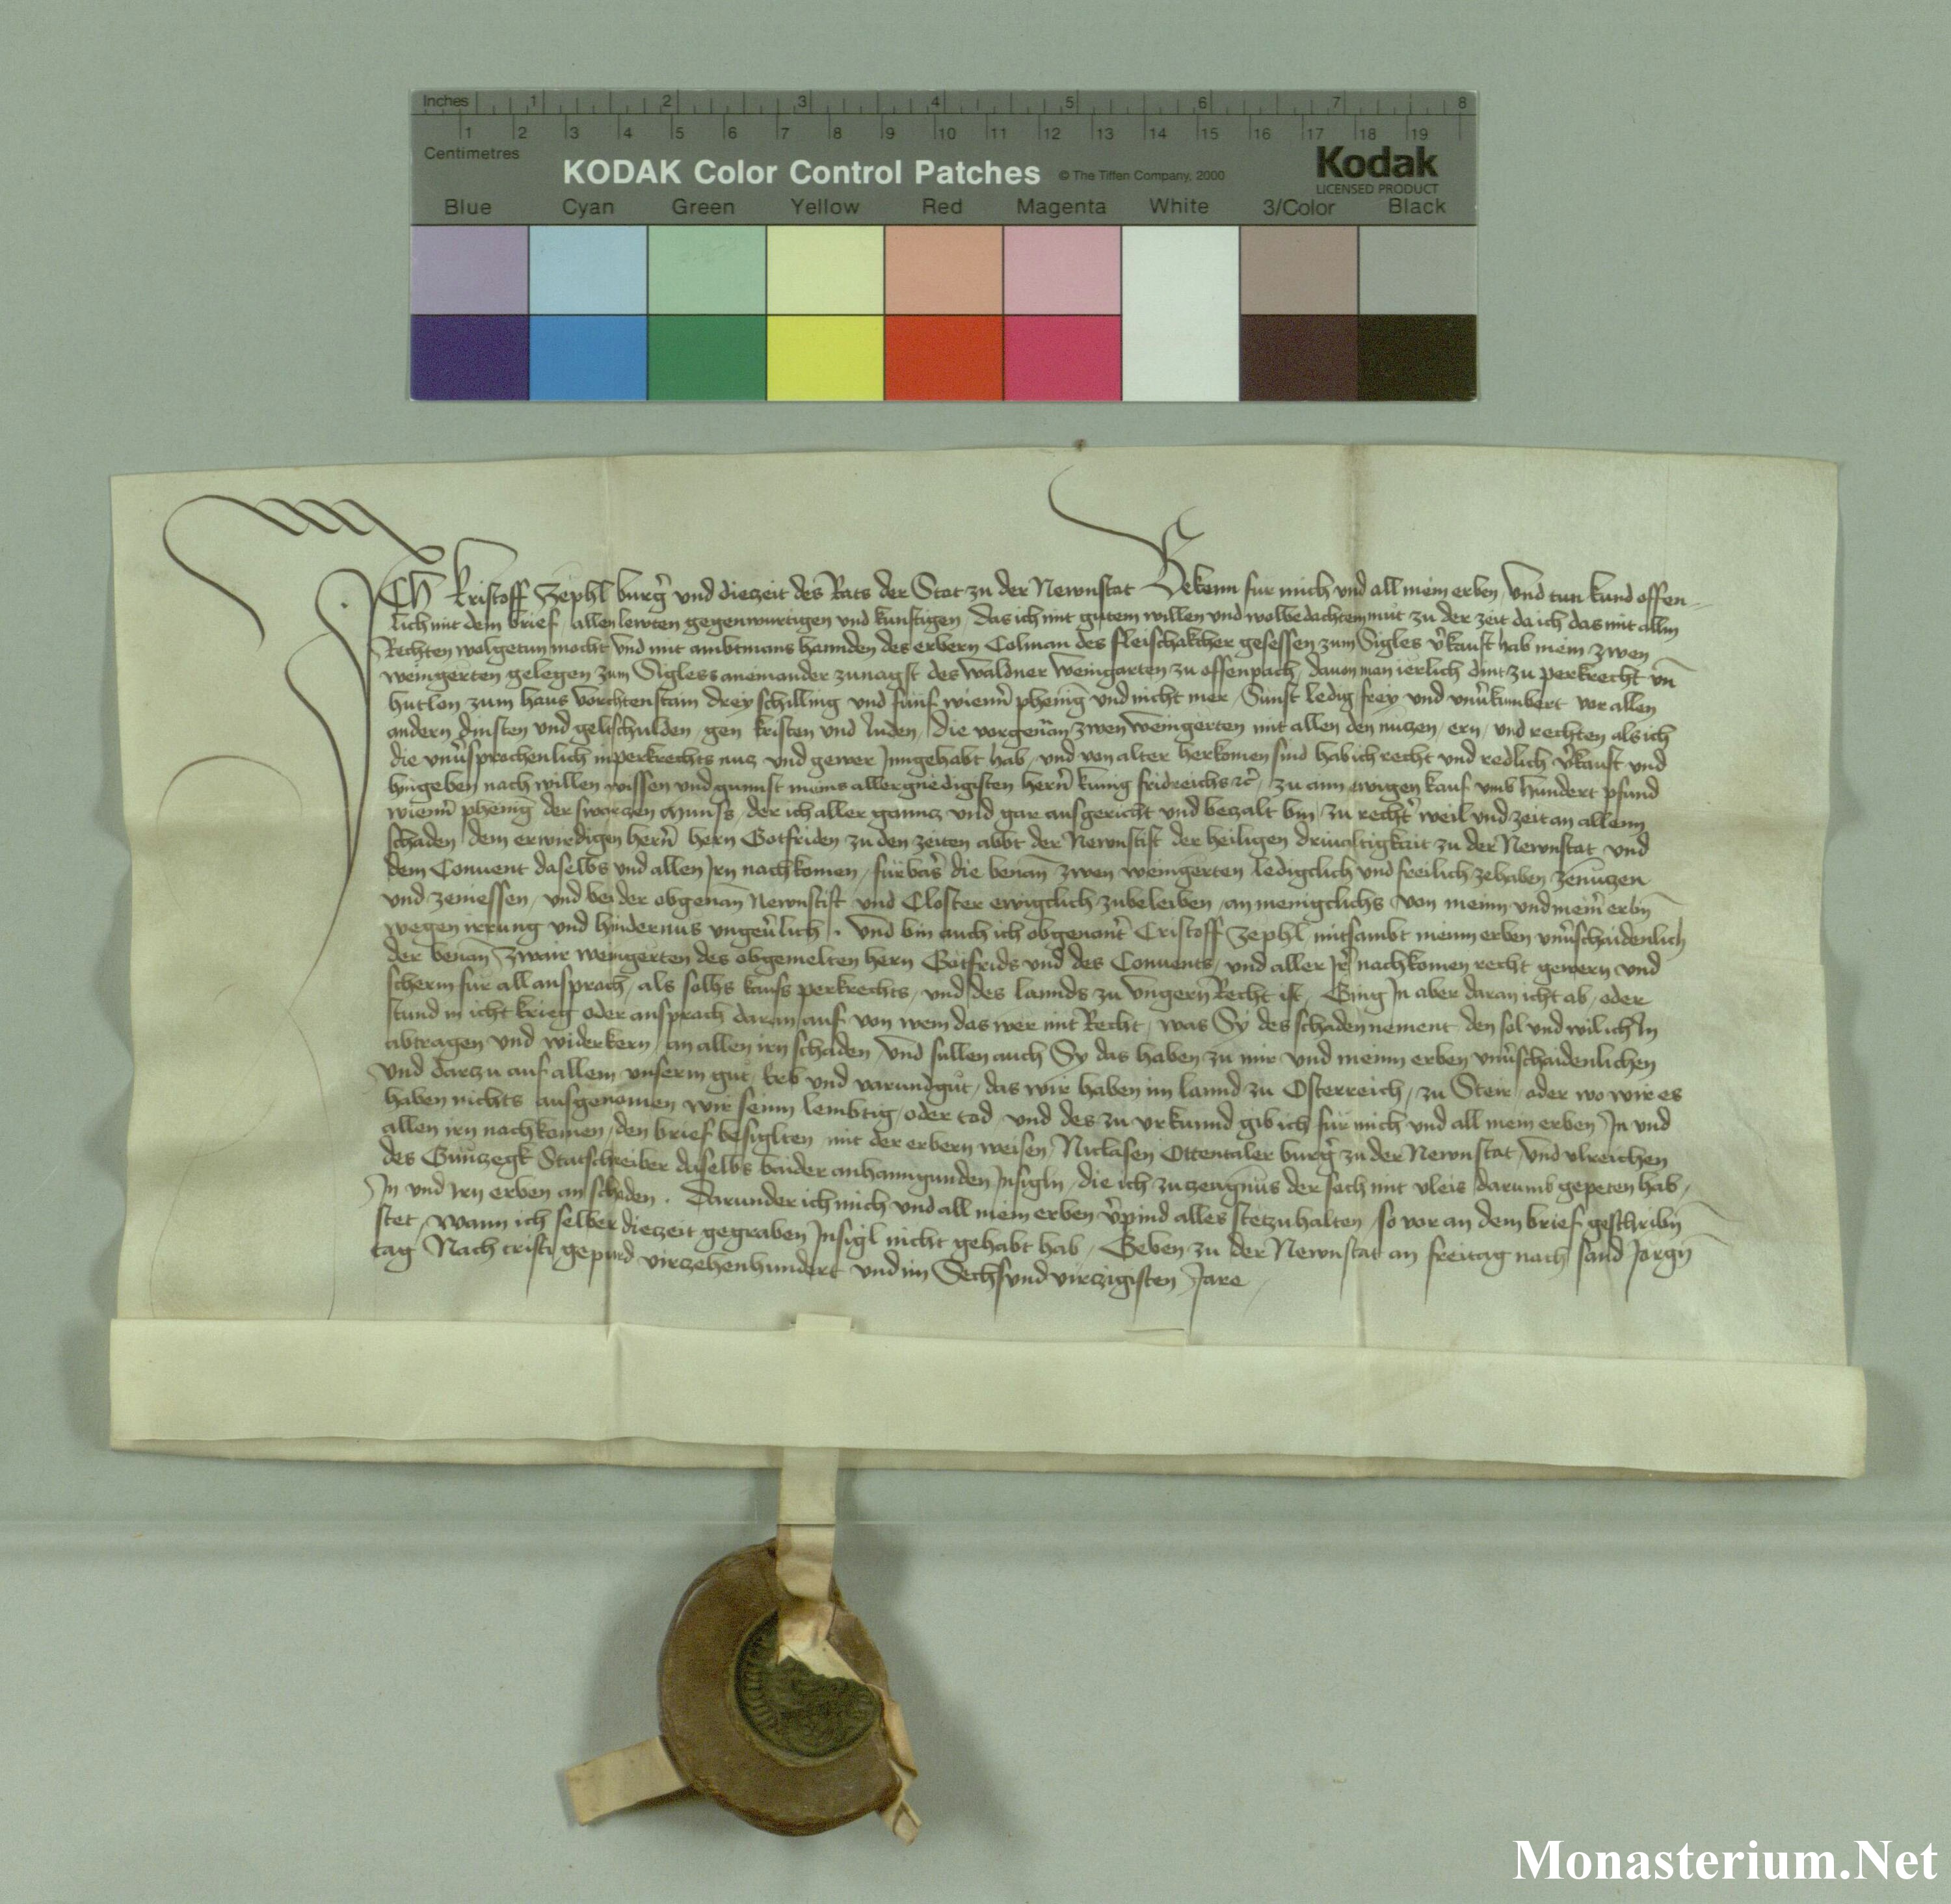 Inches 1 2 3 4 5 6 7 8
1 2 3 4 5 6 7 8 9 10 11 12 13 14 15 16 17 18 19
Centimetres
KODAK Color Control Patches © The Tiffen Company, 2000 Kodak
LICENSED PRODUCT
Blue Cyan Green Yellow Red Magenta White 3/Color Black
ICh Kristoff Zephl burgr̃ und diezeit des Rats der Stat zu der Newnstat Bekenn fur mich und all mein erben, Und tun kund offen-
lich mit dem brief, allen lewten gegenwurtigen und kunftigen, das ich mit gutem willen und wolbedachtem mut zu der zeit da ich das mit allm
Rechten wolgetun mocht und mit ambtmans hannden des erbern Colman des fleischakcher gesessen zum Sigles v̓kauft hab mein zwen
weingerten gelegen zum Sigless aneinander zunagst des Waldner weingarten zu offenpach, dauon man ierlich dint zu perkrecht vn̄
hutlon zum haus vorchtenstain drey schilling und funf wienn̄ phenig und nicht mer, Sunst ledig frey und vnu̓kumbert vor allen
andern dinsten und geltschulden, gen kristen und Juden, die vorgen̄an zwen weingerten mit allen den nuzen, ern, und rechten als ich
die vnu̓sprochenlich in perkrechts nuz und gewer Jnngehabt hab, und von alter herkomen sind hab ich recht und redlich v̓kauft und
hingeben nach willen wissen und gunnst meins allergnedigisten hern̄ kunig fridreichs ꝛc̄, zu aim ewigen kauf umb hundert pfund
wienn̄ phenig der swarzen munss, der ich aller gannz und gar ausgericht und bezalt bin, zu recht̓ weil und zeit an allenn
schaden, dem erwirdigen hern̄ hern Gotfriden zu den zeiten abbt der Newnstift der heiligen driualtigkait zu der Newnstat und
dem Conuent daselbs und allen Jrn nachkomen, furbas̓ die benan̄ zwen weingerten ledigclich und freilich zehaben zenuzen
und zeniessen, und bei der obgenan̄ Newnstift und Closter ewigclich zubeleiben, an menigclichs von meinn und mein̄ erbn̄
wegen irrung und hindernus ungeu̓lich, Und bin auch ich obgenant̓ Cristoff Zephl mitsambt meinn erben vnu̓schaidenlich
der benan̄ zwair weingerten des obgemelten hern Gotfrids und des Conuents, und aller Jr̄ nachkomen recht gewern und
scherm fur all ansprach, als solhs kaufs perkrechts, und des lannds zu Ungern Recht ist, Ging Jn aber daran icht ab, oder
stund in icht krieg oder ansprach daran auf von wem das wer mit Recht, was Sy des schaden nement den sol und wil ich Jn
abtragen und widerkern, an allen irn schaden, Und sullen auch Sy das haben zu mir und meinn erben vnu̓schaidenlichen
Und darzu auf allem unserm gut, Erb und varundgut, das wir haben im lannd zu Osterreich, zu Steir, oder wo wir es
haben nichts ausgenomen wir seinn lembtig, oder tod und des zu urkunnd gib ich fur mich und all mein erben Jn und
allen irn nachkomen, den brief besiglten mit der erbern weisen, Niclasen Ottentaler burgr̃ zu der Newnstat, Und ulreichen
des Statschreiber daselbs baider anhanngunden Jnsigln, die ich zu zeugnus der sach mit vleis darumb gepeten hab,
Jn und irn erben an schaden. Darunder ich mich und all mein erben v̓pind alles stet zu halten, so vor an dem brief geschribn̄
stet, Wann ich selber diezeit gegraben Jnsigl nicht gehabt hab, Geben zu der Newnstat an freitag nach sand Jorgn̄
tag Nach cristi gepurd virzehenhundert und im Sechsundvirzigisten Jare
Monasterium.Net